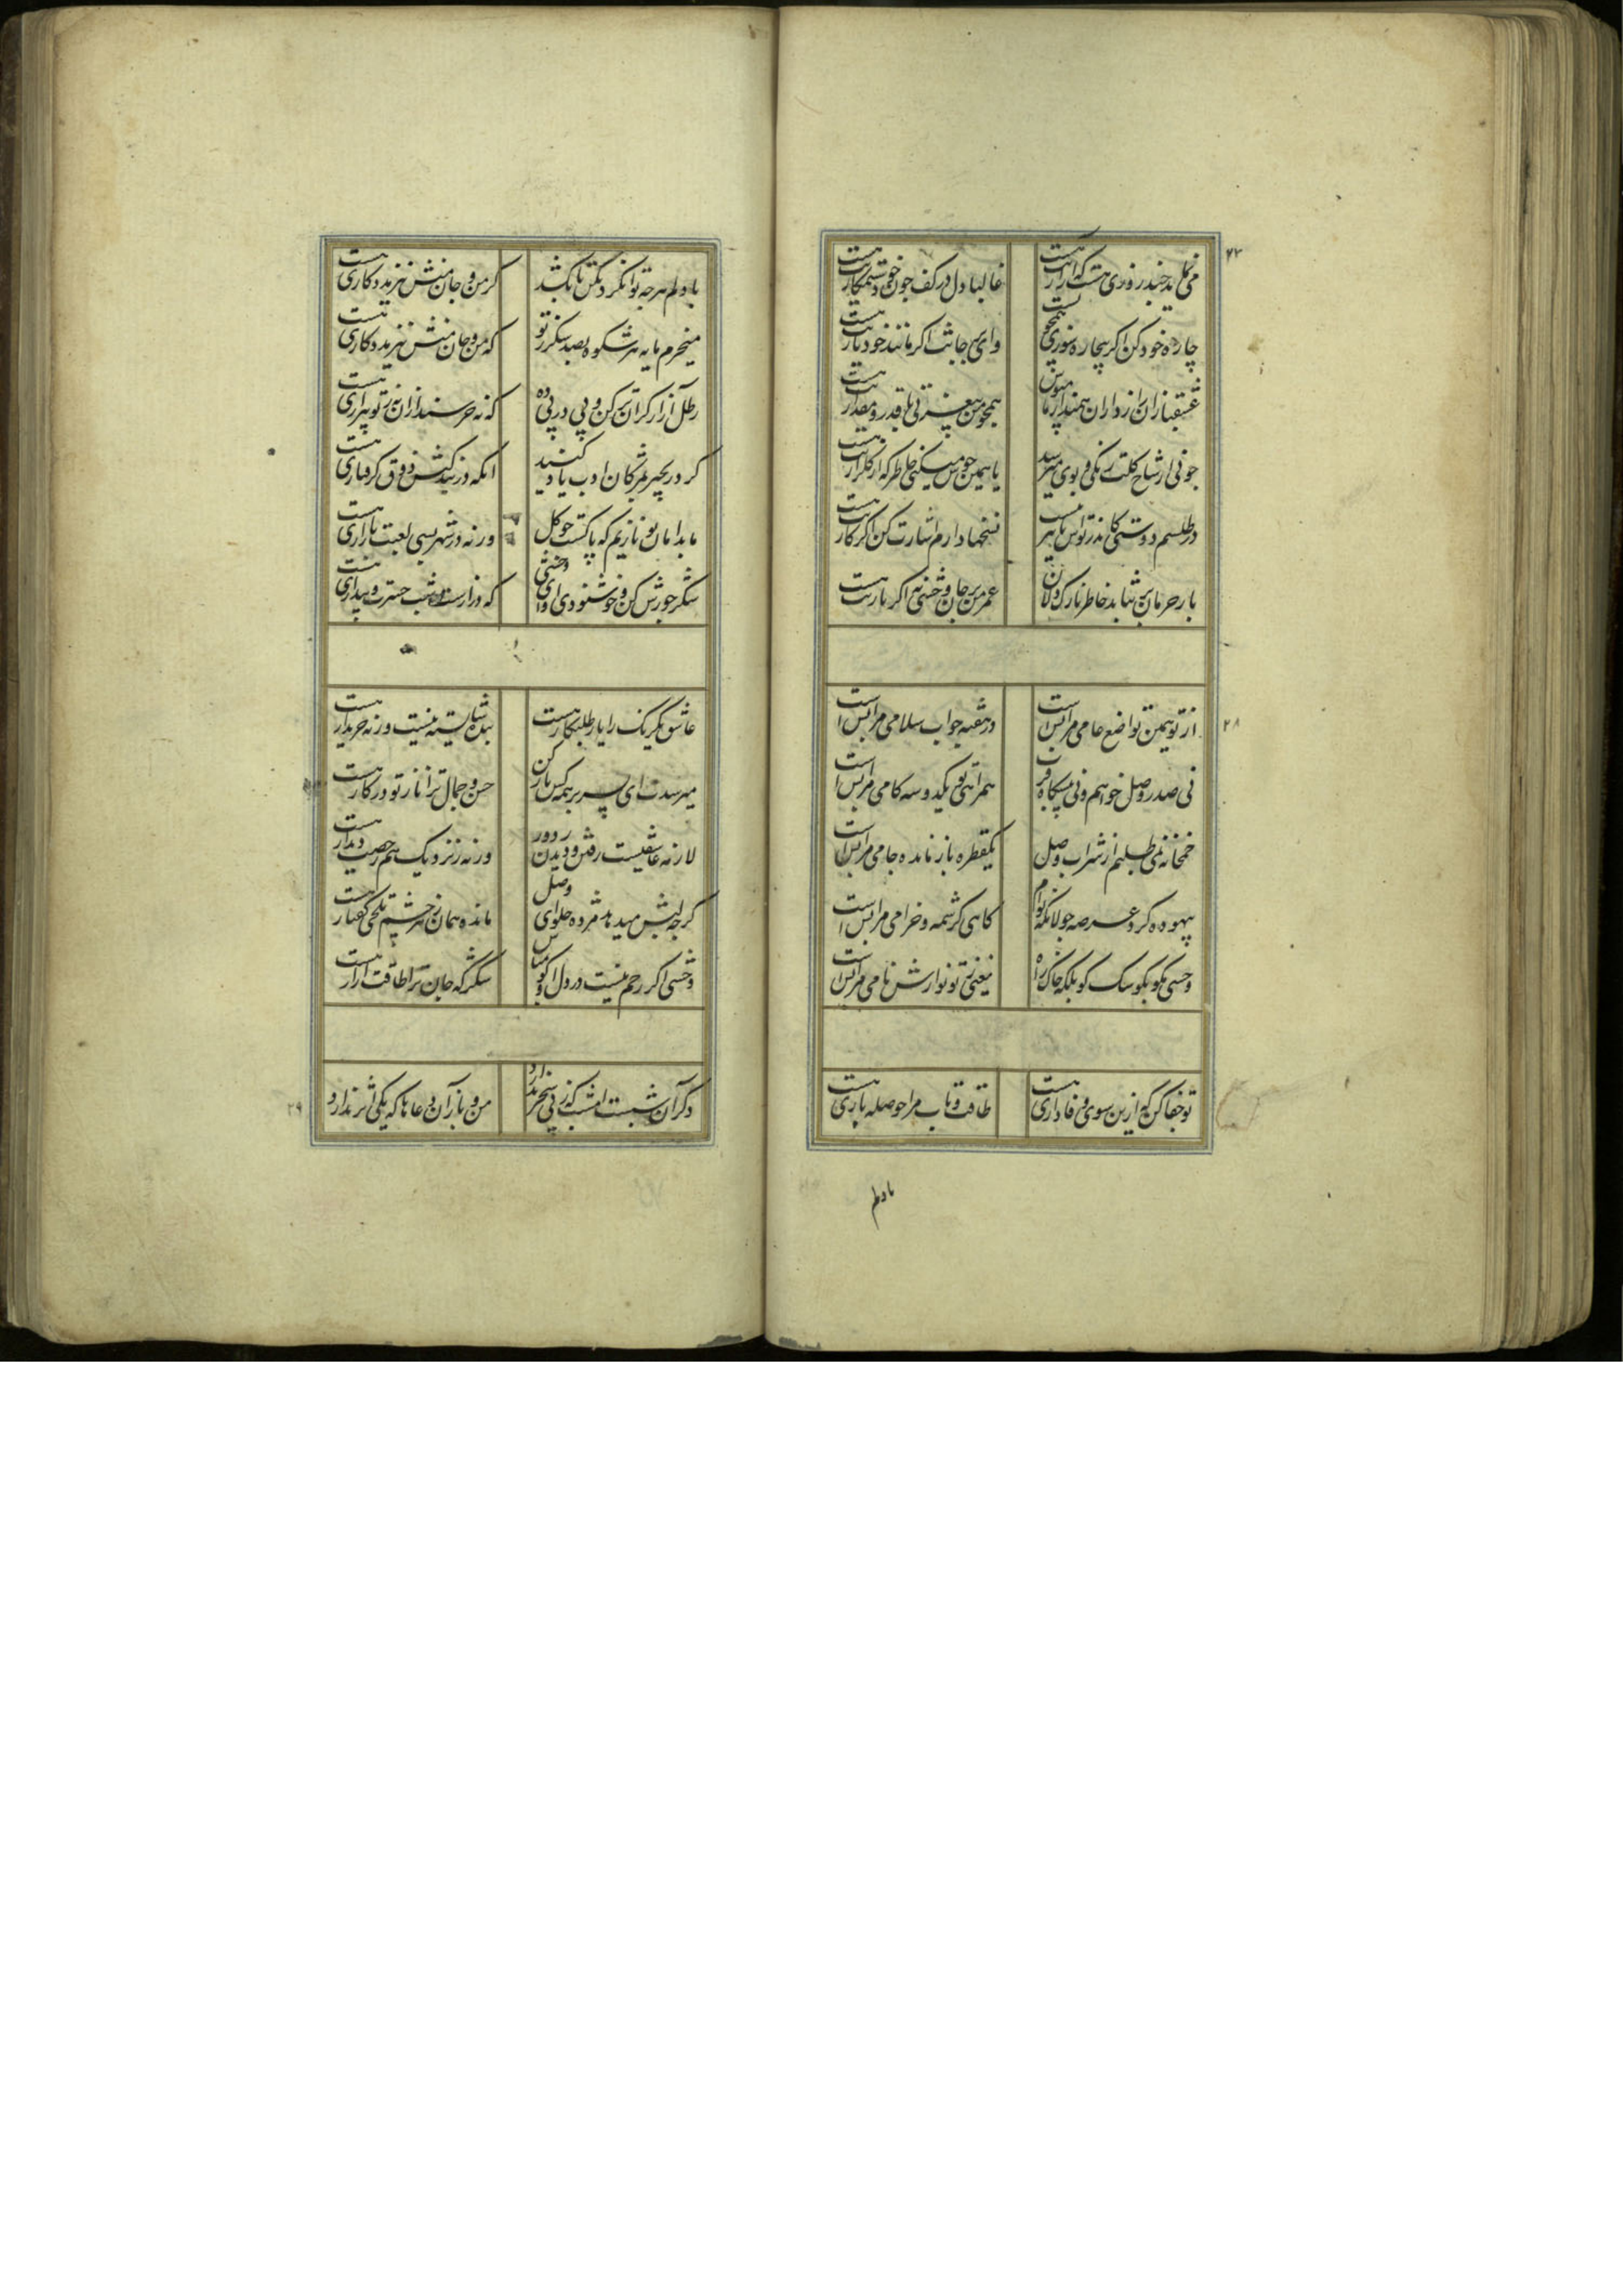 ۲۷
می‌نماید چند روزی هست که آزاریت هست
غالبا دل در کف چون خود ستمکاریت هست
چاره خود کن اگر بیچاره سوزی همچو تست
وای بر جانت اگر مانند خود یاریت هست
عشقبازان رازداران همند از ما مپوش
همچو من بی عزتی یا قدر و مقداریت هست
چونی از شاخ گلت رنگی و بویی میرسد
یا بهمین خوش میکنی خاطر که گلزاریت هست
در طلسم دوستی کاندر تواش تاثیر نیست
نسخها دارم اشارت کن اگر کاریت هست
بار حرمان برنتابد خاطر نازک دلان
عمر من بر جان وحشی نه اگر باریت هست
۲۸
از تو همین تواضع عامی مرا بس است
در هفته جواب سلامی مرا بس است
نی صدر وصل خواهم و نی پیشگاه قرب
همراهی تو یکدو سه گامی مرا بس است
خمخانه نمی‌طلبم از شراب وصل
یکقطره بازمانده جامی مرا بس است
بیهوده گرد عرصه جولانگه توام
گاهی کرشمه و خرامی مرا بس است
وحشی مگو بگو سگ کو بلکه خاک راه
یعنی ز تو نوازش نامی مرا بس است
تو جفا کن که ازین سوی وفاداری هست
طاقت و تاب مرا حوصله باری هست
با دلم
با دلم هر چه توان کرد بکن تا بکشد
کز من و جان منش نیز مددکاری هست
میخرم مایه هر شکوه بصد شکر ز تو
که من و جان منش نیز مددکاری هست
رطل آزار گران‌تر کن و پی در پی ده
گر در زنجیر بمژگان ادب یاد کنید
آنکه در بند کسش ذوق گرفتاری هست
ما بدامان تو نازیم که پاکست چو گل
ورنه در شهر بسی لعبت بازاری هست
شکر جورش کن و خوشنودی او ای وحشی
که درازست شب حسرت و بیداری هست
عاشق یکرنگ را یار طلبکار هست
بنده شایسته نیست ورنه خریدار هست
میرسدت ای پسر بر همه کس ناز کن
حسن و جمال ترا ناز تو در کار هست
لازمه عاشقیست رفتن و دیدن ز دور
ورنه ز نزدیک هم رخصت دیدار هست
گرچه لبش میدهد مژده حلوای وصل
مانده همان زهر چشم تلخی گفتار هست
وحشی اگر رحم نیست در دل او گو مباش
شکر که جان ترا طاقت آزار هست
۲۹
دگر آن شبست امشب که ز پی سحر ندارد
من و باز آن دعاها که یکی اثر ندارد